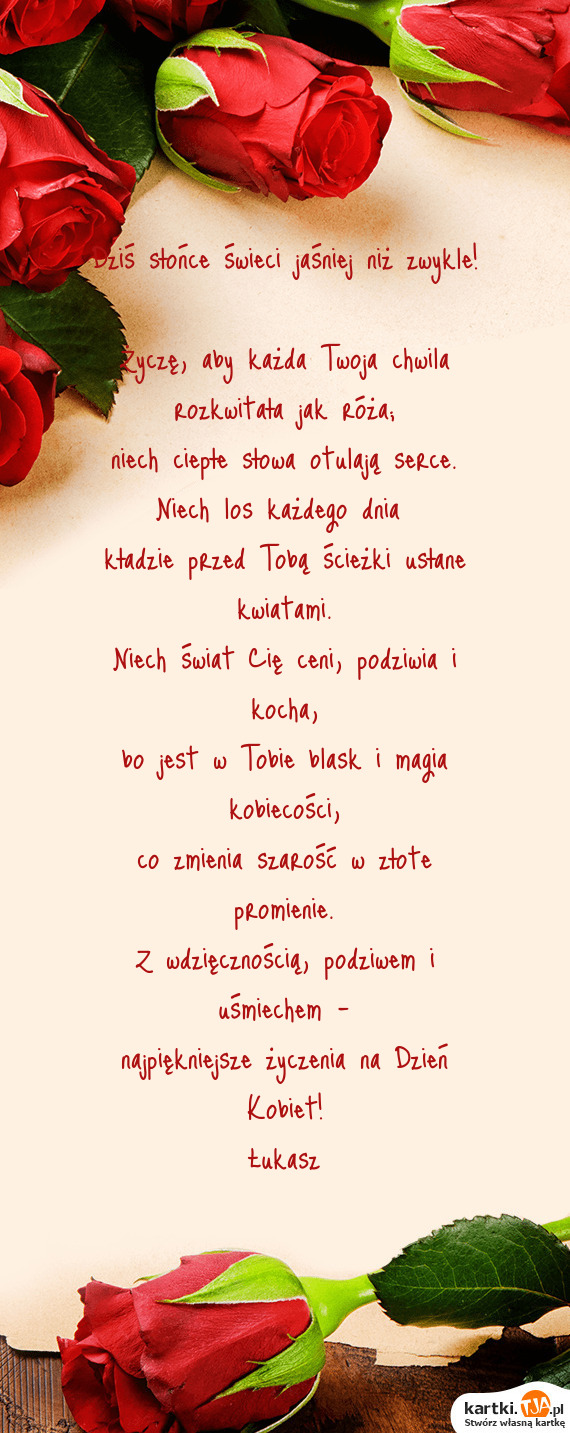 Dziś słońce świeci jaśniej niż zwykle!
Życzę, aby każda Twoja chwila
rozkwitała jak róża;
niech ciepłe słowa otulają serce.
Niech los każdego dnia
kładzie przed Tobą ścieżki usłane
kwiatami.
Niech świat Cię ceni, podziwia i
kocha,
bo jest w Tobie blask i magia
kobiecości,
co zmienia szarość w złote
promienie.
Z wdzięcznością, podziwem i
uśmiechem -
najpiękniejsze życzenia na Dzień
Kobiet!
Łukasz
kartki.TJA.pl
Stwórz własną kartkę